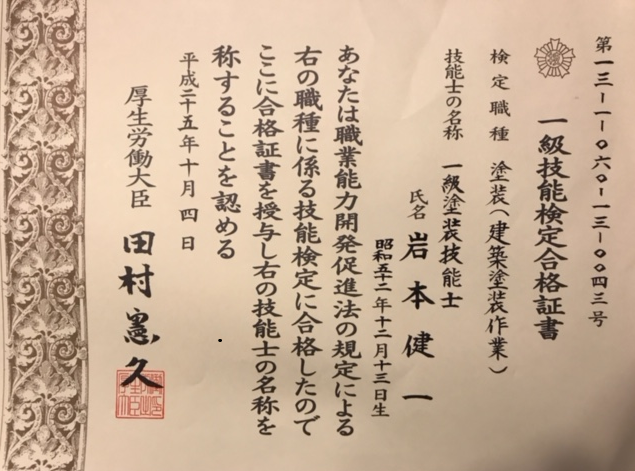 第一三-一-〇六〇-一三-〇〇四三号
一級技能検定合格証書
検定職種 塗装(建築塗装作業)
技能士の名称 一級塗装技能士
氏名 岩本健一
昭和五十二年十二月十三日生
あなたは職業能力開発促進法の規定による
右の職種に係る技能検定に合格したので
ここに合格証書を授与し右の技能士の名称を
称することを認める
平成二十五年十月四日
厚生労働大臣 田村憲久